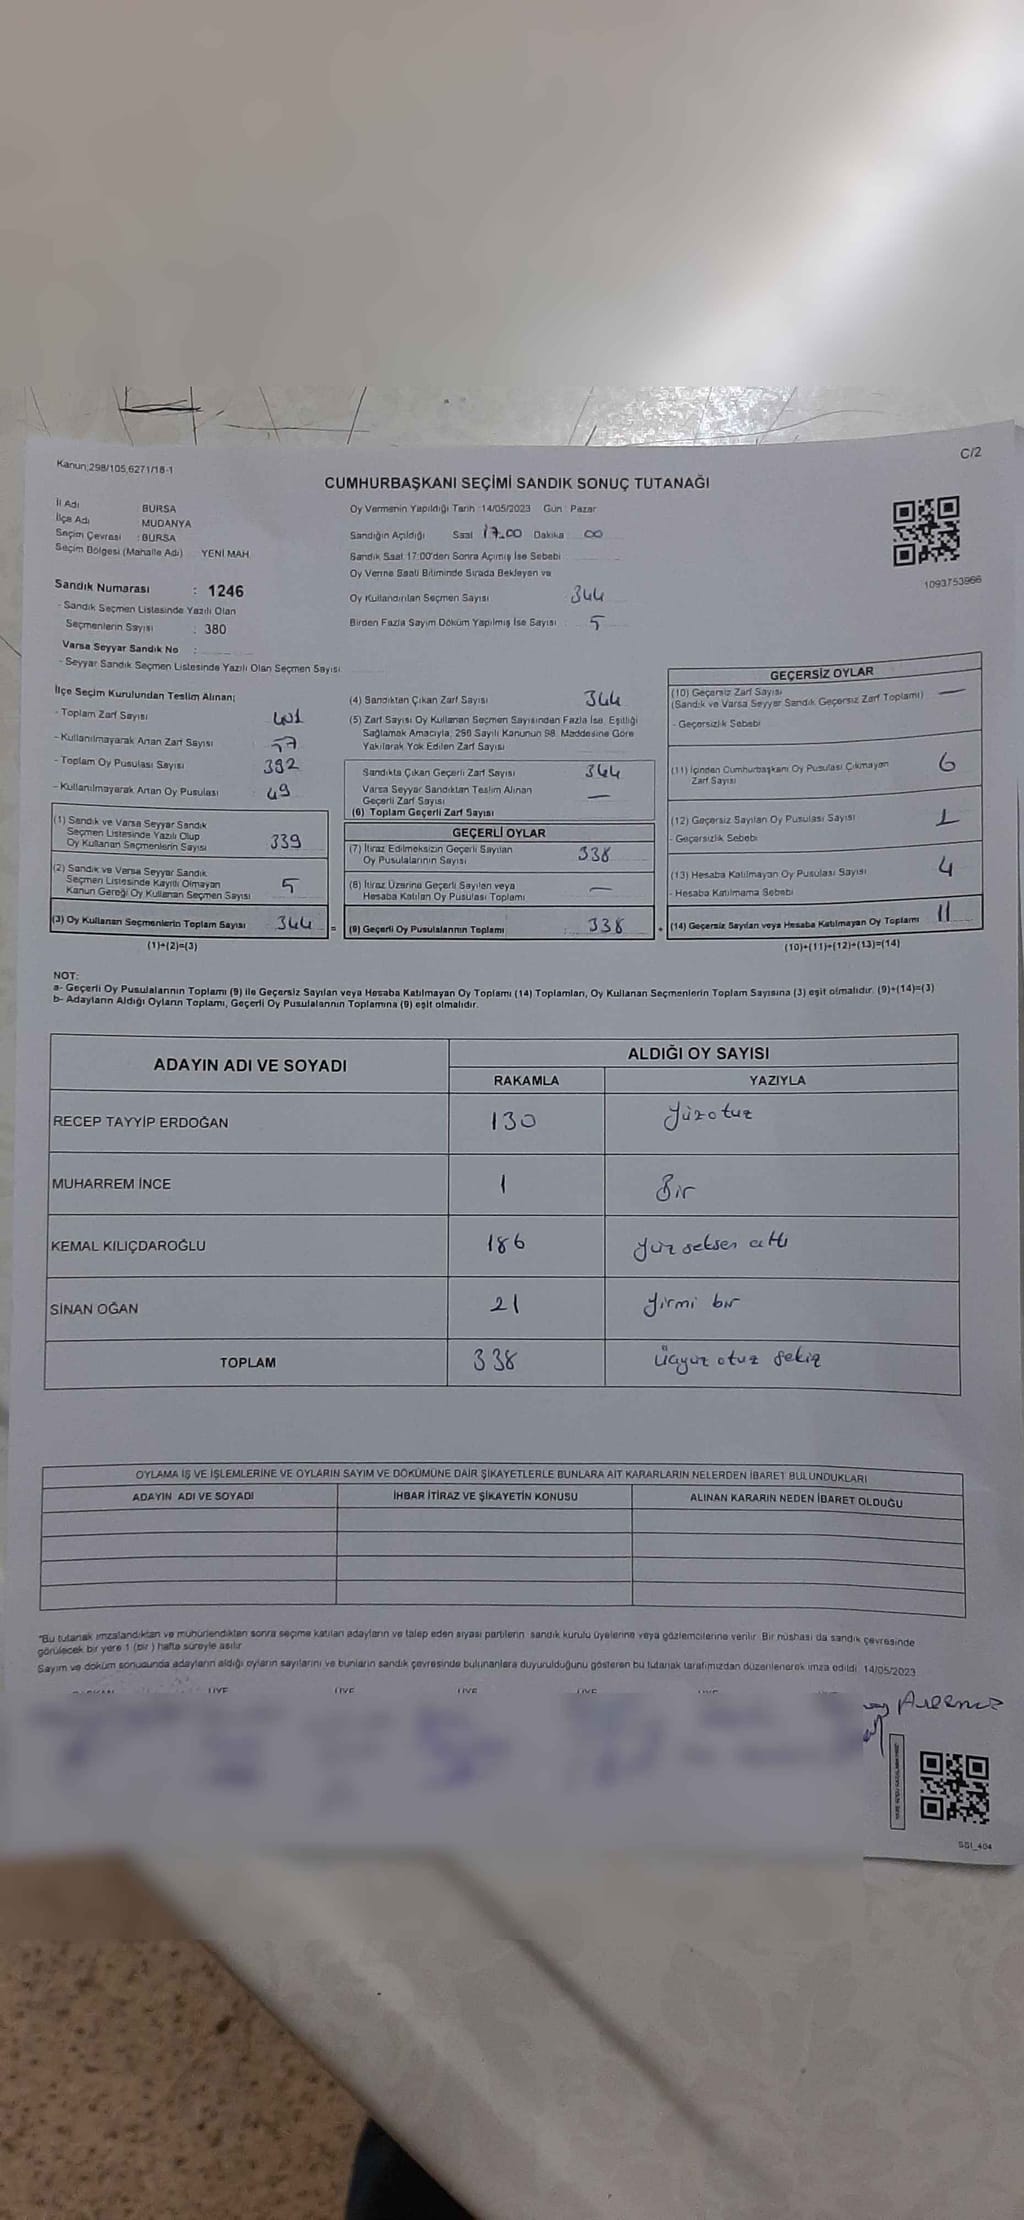 C/2
Kanun;298/105,6271/18-1
CUMHURBAŞKANI SEÇİMİ SANDIK SONUÇ TUTANAĞI
İl Adı BURSA
İlçe Adı MUDANYA
Seçim Çevresi : BURSA
Seçim Bölgesi (Mahalle Adı) YENİ MAH.
Oy Vermenin Yapıldığı Tarih :14/05/2023 Gün : Pazar
Sandığın Açıldığı Saat 17.00 Dakika 00
Sandık Saat 17:00'den Sonra Açımış İse Sebebi
Oy Verme Saati Bitiminde Sırada Bekleyen ve
Oy Kullandırılan Seçmen Sayısı 344
Birden Fazla Sayım Döküm Yapılmış İse Sayısı : 5
1093753966
Sandık Numarası : 1246
- Sandık Seçmen Listesinde Yazılı Olan
Seçmenlerin Sayısı : 380
Varsa Seyyar Sandık No :
- Seyyar Sandık Seçmen Listesinde Yazılı Olan Seçmen Sayısı
İlçe Seçim Kurulundan Teslim Alınan;
- Toplam Zarf Sayısı 401
- Kullanılmayarak Artan Zarf Sayısı
- Toplam Oy Pusulası Sayısı 392
- Kullanılmayarak Artan Oy Pusulası 49
(1) Sandık ve Varsa Seyyar Sandık
Seçmen Listesinde Yazılı Olup
Oy Kullanan Seçmenlerin Sayısı 339
(2) Sandık ve Varsa Seyyar Sandık
Seçmen Listesinde Kayıtlı Olmayan
Kanun Gereği Oy Kullanan Seçmen Sayısı 5
(3) Oy Kullanan Seçmenlerin Toplam Sayısı 344 =
(1)+(2)=(3)
(4) Sandıktan Çıkan Zarf Sayısı 344
(5) Zarf Sayısı Oy Kullanan Seçmen Sayısından Fazla İse, Eşitliği
Sağlamak Amacıyla, 298 Sayılı Kanunun 98. Maddesine Göre
Yakılarak Yok Edilen Zarf Sayısı
Sandıkta Çıkan Geçerli Zarf Sayısı 344
Varsa Seyyar Sandıktan Teslim Alınan
Geçerli Zarf Sayısı —
(6) Toplam Geçerli Zarf Sayısı
GEÇERLİ OYLAR
(7) İtiraz Edilmeksizin Geçerli Sayılan
Oy Pusulalarının Sayısı 338
(8) İtiraz Üzerine Geçerli Sayılan veya
Hesaba Katılan Oy Pusulası Toplamı —
(9) Geçerli Oy Pusulalarının Toplamı : 338 +
GEÇERSİZ OYLAR
(10) Geçersiz Zarf Sayısı
(Sandık ve Varsa Seyyar Sandık Geçersiz Zarf Toplamı) —
- Geçersizlik Sebebi
(11) İçinden Cumhurbaşkanı Oy Pusulası Çıkmayan
Zarf Sayısı 6
(12) Geçersiz Sayılan Oy Pusulası Sayısı 1
- Geçersizlik Sebebi
(13) Hesaba Katılmayan Oy Pusulası Sayısı 4
- Hesaba Katılmama Sebebi
(14) Geçersiz Sayılan veya Hesaba Katılmayan Oy Toplamı 11
(10)+(11)+(12)+(13)=(14)
NOT:
a- Geçerli Oy Pusulalarının Toplamı (9) ile Geçersiz Sayılan veya Hesaba Katılmayan Oy Toplamı (14) Toplamları, Oy Kullanan Seçmenlerin Toplam Sayısına (3) eşit olmalıdır. (9)+(14)=(3)
b- Adayların Aldığı Oyların Toplamı, Geçerli Oy Pusulalarının Toplamına (9) eşit olmalıdır.
ADAYIN ADI VE SOYADI ALDIĞI OY SAYISI
RAKAMLA YAZIYLA
RECEP TAYYİP ERDOĞAN 130 Yüzotuz
MUHARREM İNCE 1 Bir
KEMAL KILIÇDAROĞLU 186 Yüz seksen altı
SİNAN OĞAN 21 Yirmi bir
TOPLAM 338 Üçyüz otuz sekiz
OYLAMA İŞ VE İŞLEMLERİNE VE OYLARIN SAYIM VE DÖKÜMÜNE DAİR ŞİKAYETLERLE BUNLARA AİT KARARLARIN NELERDEN İBARET BULUNDUKLARI
ADAYIN ADI VE SOYADI İHBAR İTİRAZ VE ŞİKAYETİN KONUSU ALINAN KARARIN NEDEN İBARET OLDUĞU
*Bu tutanak imzalandıktan ve mühürlendikten sonra seçime katılan adayların ve talep eden siyasi partilerin sandık kurulu üyelerine veya gözlemcilerine verilir. Bir nüshası da sandık çevresinde
görülecek bir yere 1 (bir ) hafta süreyle asılır
Sayım ve döküm sonucunda adayların aldığı oyların sayılarını ve bunların sandık çevresinde bulunanlara duyurulduğunu gösteren bu tutanak tarafımızdan düzenlenerek imza edildi. 14/05/2023